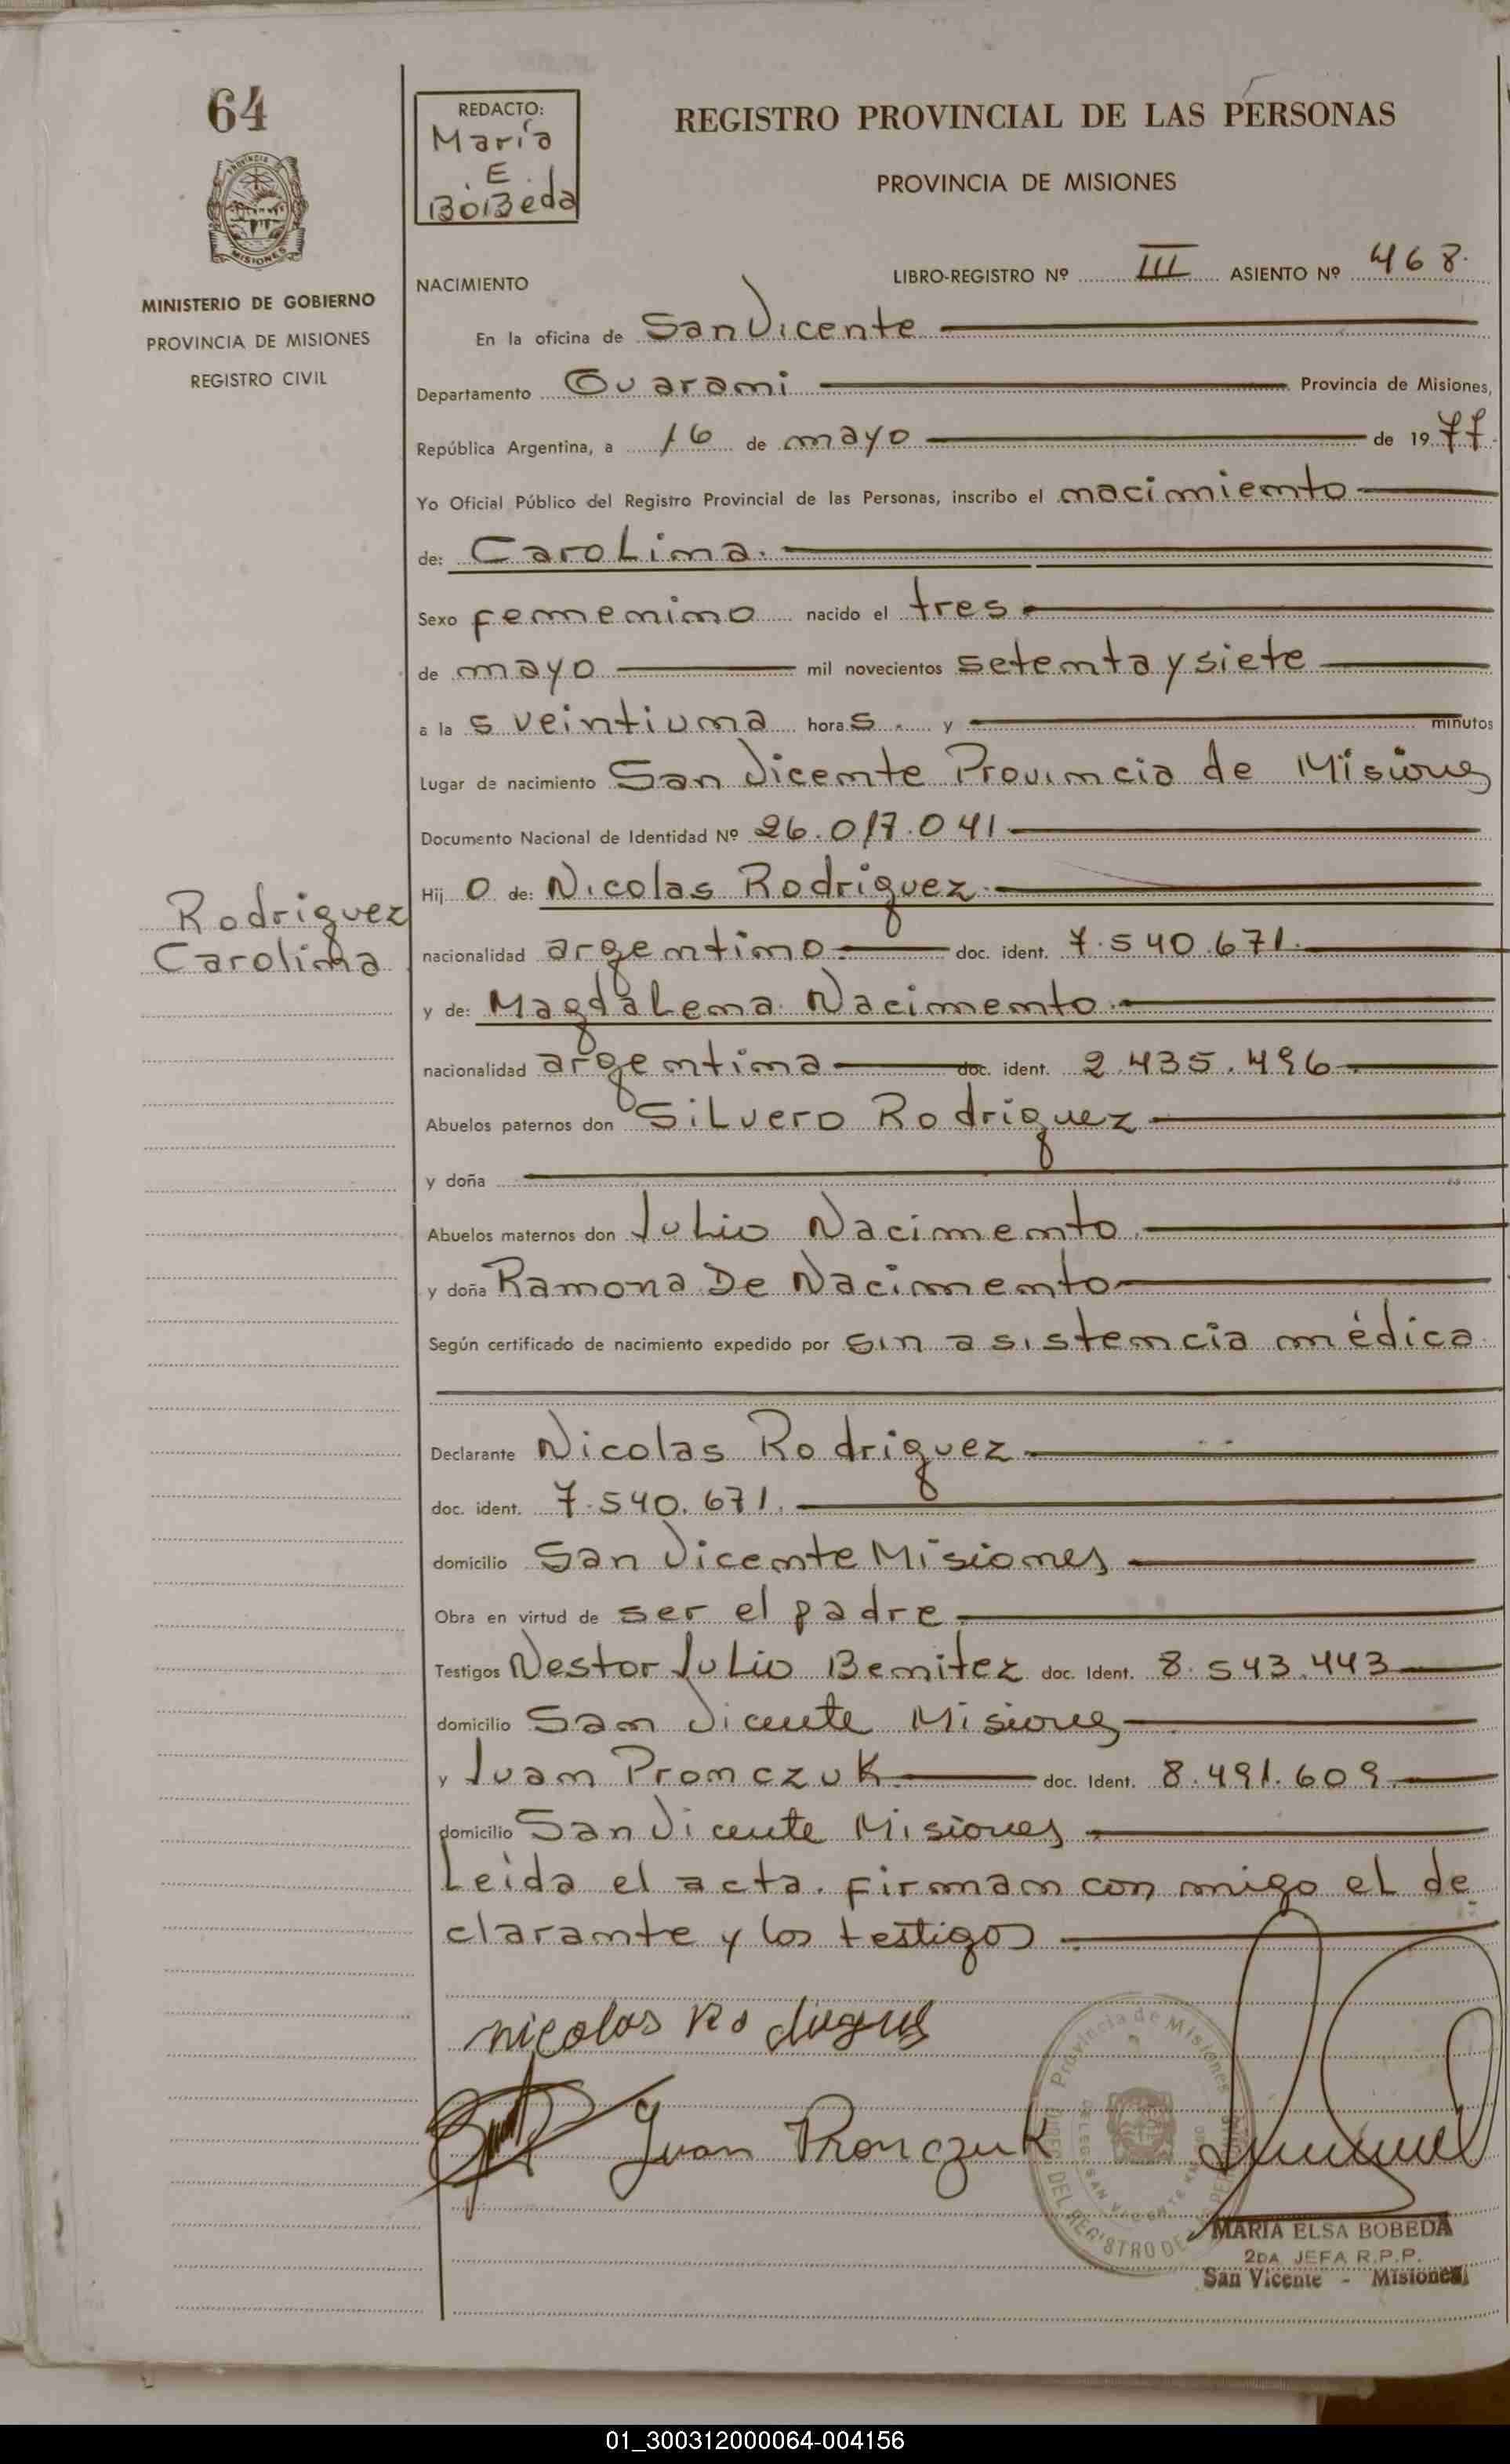 64
REDACTO:
María
E.
BoBeda
REGISTRO PROVINCIAL DE LAS PERSONAS
PROVINCIA DE MISIONES
Provincia
MISIONES
MINISTERIO DE GOBIERNO
PROVINCIA DE MISIONES
REGISTRO CIVIL
LIBRO-REGISTRO Nº III ASIENTO Nº 468.
NACIMIENTO
En la oficina de San Vicente
Departamento Guarani Provincia de Misiones,
República Argentina, a 16 de mayo de 1977
Yo Oficial Público del Registro Provincial de las Personas, inscribo el nacimiento
de: Carolina.
Sexo femenino nacido el tres
de mayo mil novecientos setenta y siete
a la s veintiuna hora s. y minutos
Lugar de nacimiento San Vicente Provincia de Misiones
Documento Nacional de Identidad Nº 26.017.041
Hij o de: Nicolas Rodriguez.
Rodriguez
Carolina
nacionalidad argentino doc. ident. 7.540.671.
y de: Magdalena Nacimento.
nacionalidad argentina doc. ident. 2.435.496
Abuelos paternos don Silvero Rodriguez
y doña
Abuelos maternos don Julio Nacimento.
y doña Ramona De Nacimento
Según certificado de nacimiento expedido por sin asistencia médica
Declarante Nicolas Rodriguez
doc. ident. 7.540.671.
domicilio San Vicente Misiones
Obra en virtud de ser el padre
Testigos Nestor Julio Benitez doc. Ident. 8.543.443
domicilio San Vicente Misiones
y Juan Pronczuk. doc. Ident. 8.491.609
domicilio San Vicente Misiones
Leida el acta. firman con migo el de
clarante y los testigos
nicolas Rodriguez
Juan Pronczuk
Provincia de Misiones
DEL REGISTRO DE
DELEG. SAN VICENTE
MARIA ELSA BOBEDA
2DA JEFA R.P.P.
San Vicente - Misiones
01_300312000064-004156